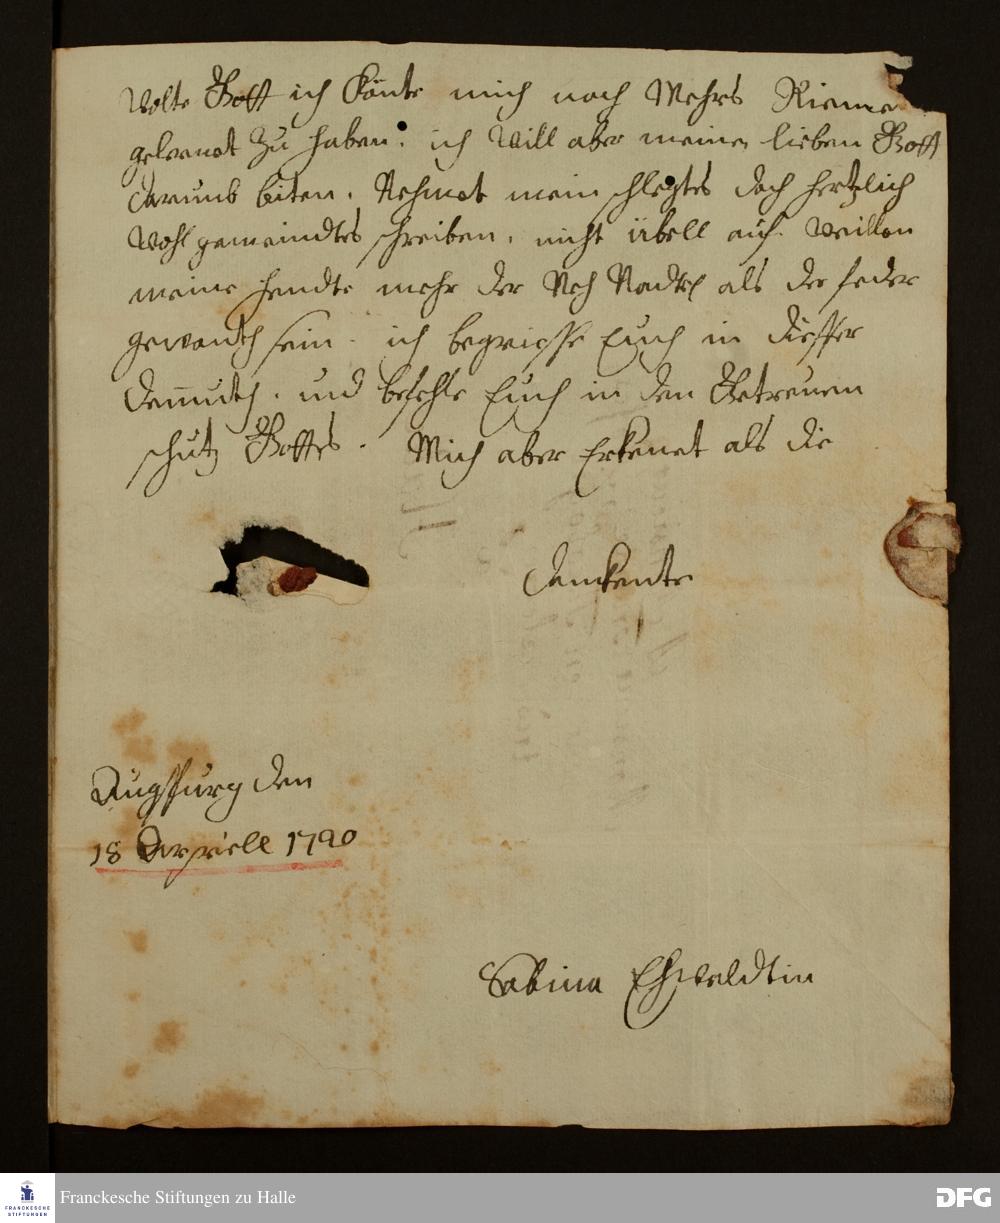 Wolte Gott ich Könte mich noch Mehrs
gelernet Zu haben. ich Will aber meinen lieben Gott
darumb biten. Nehmet mein schlegtes doch hertzlich
Wohl gemeindtes schreiben. nicht übell auf. Weillen
meine hendte mehr der Neh Nadtel als der feder
gewonth sein. ich begriesse Euch in diesser
demuth. und befehle Euch in den Getreuem
schutz Gottes. Mich aber Erkenet als die
danckente
Augspurg den
18 Appriell 1720
Sabina Ehwaldtin
Franckesche Stiftungen zu Halle
FRANCKESCHE
STIFTUNGEN
DFG